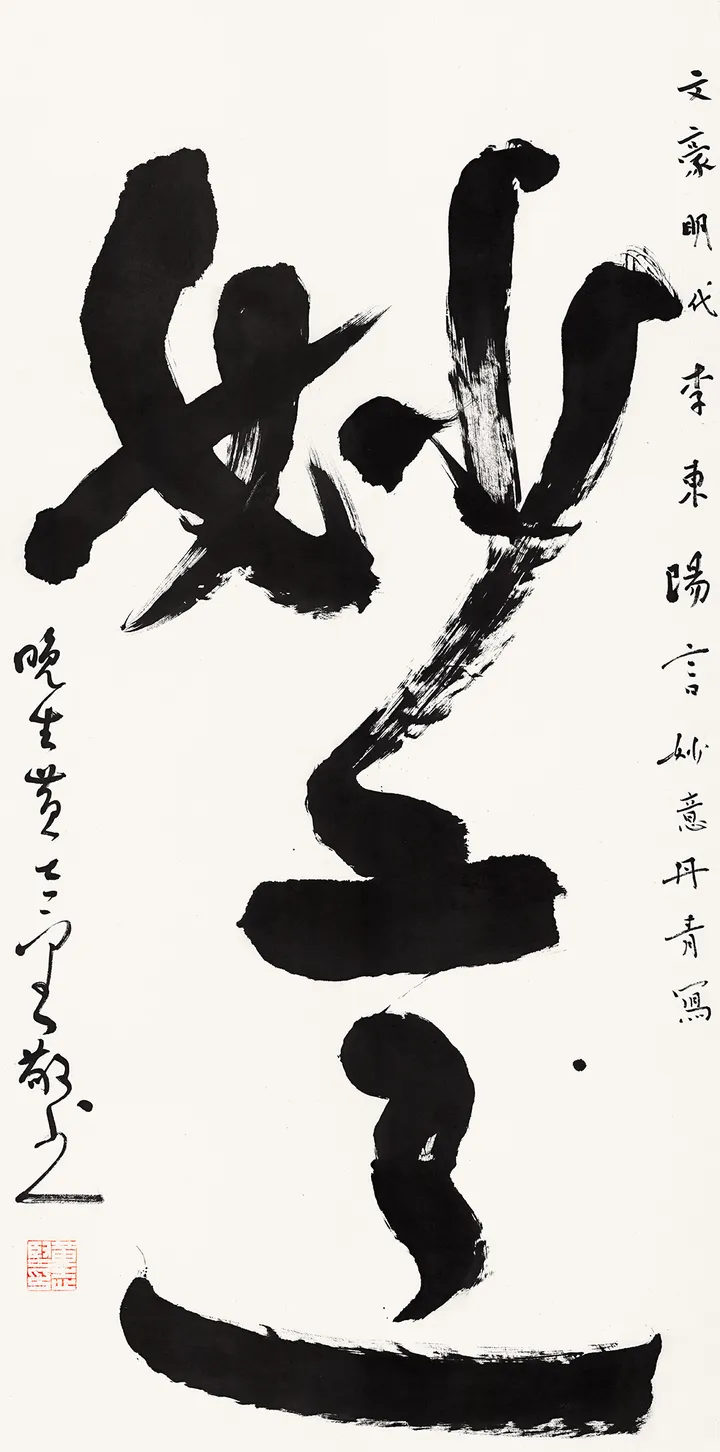 文豪明代李東陽言妙意丹青寫
妙意
晚生黃敬書